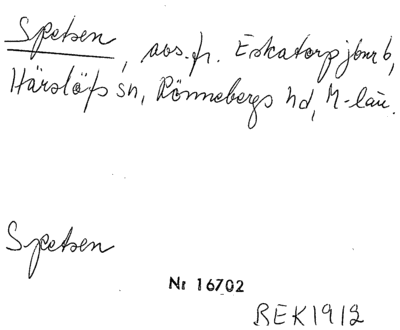 Spetsen, avs. fr. Eskatorp jbnr 6,
Härslöfs sn, Rönnebergs hd, M-län.
Spetsen
Nr 16702
REK1912